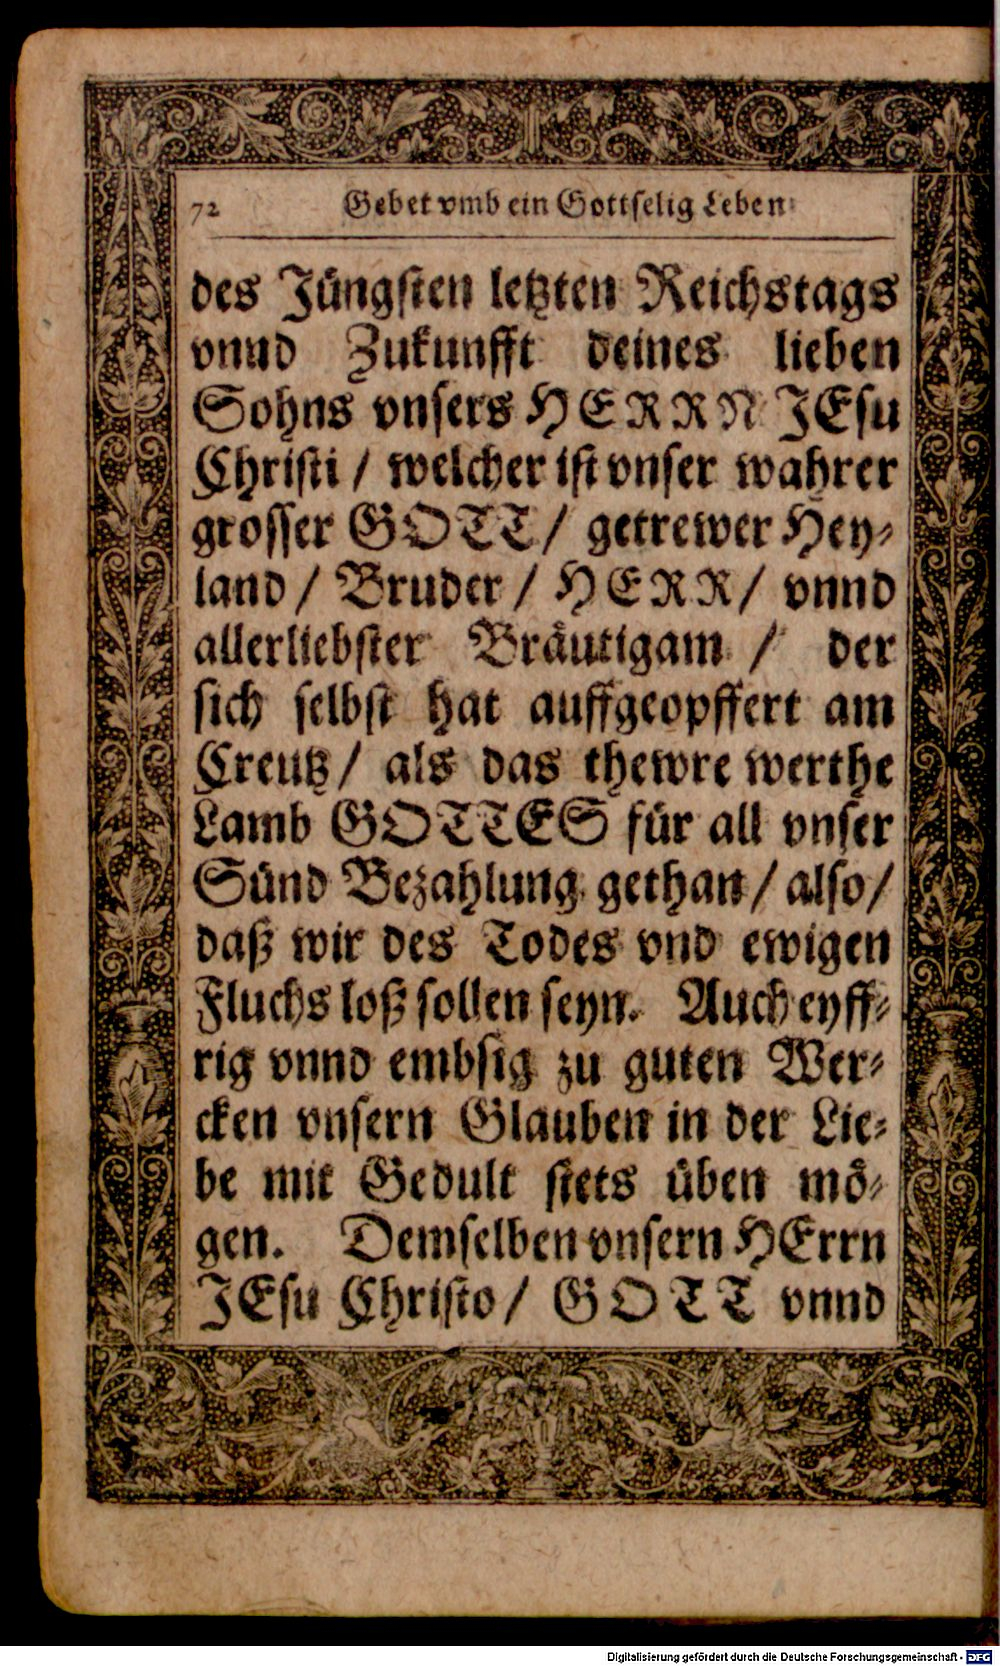 72 Gebet vmb ein Gottselig Leben
des Jüngsten letzten Reichstags
vnnd Zukunfft deines lieben
Sohns vnsers HERRN JEsu
Christi / welcher ist vnser wahrer
grosser GOTT / getrewer Hey-
land / Bruder / HERR / vnnd
allerliebster Bräutigam / der
sich selbst hat auffgeopffert am
Creutz / als das thewre werthe
Lamb GOTTES für all vnser
Sünd Bezahlung gethan / also /
daß wir des Todes vnd ewigen
Fluchs loß sollen seyn. Auch eyff-
rig vnnd embsig zu guten Wer-
cken vnsern Glauben in der Lie-
be mit Gedult stets üben mö-
gen. Demselben vnsern HErrn
JEsu Christo / GOTT vnnd
Digitalisierung gefördert durch die Deutsche Forschungsgemeinschaft - DFG